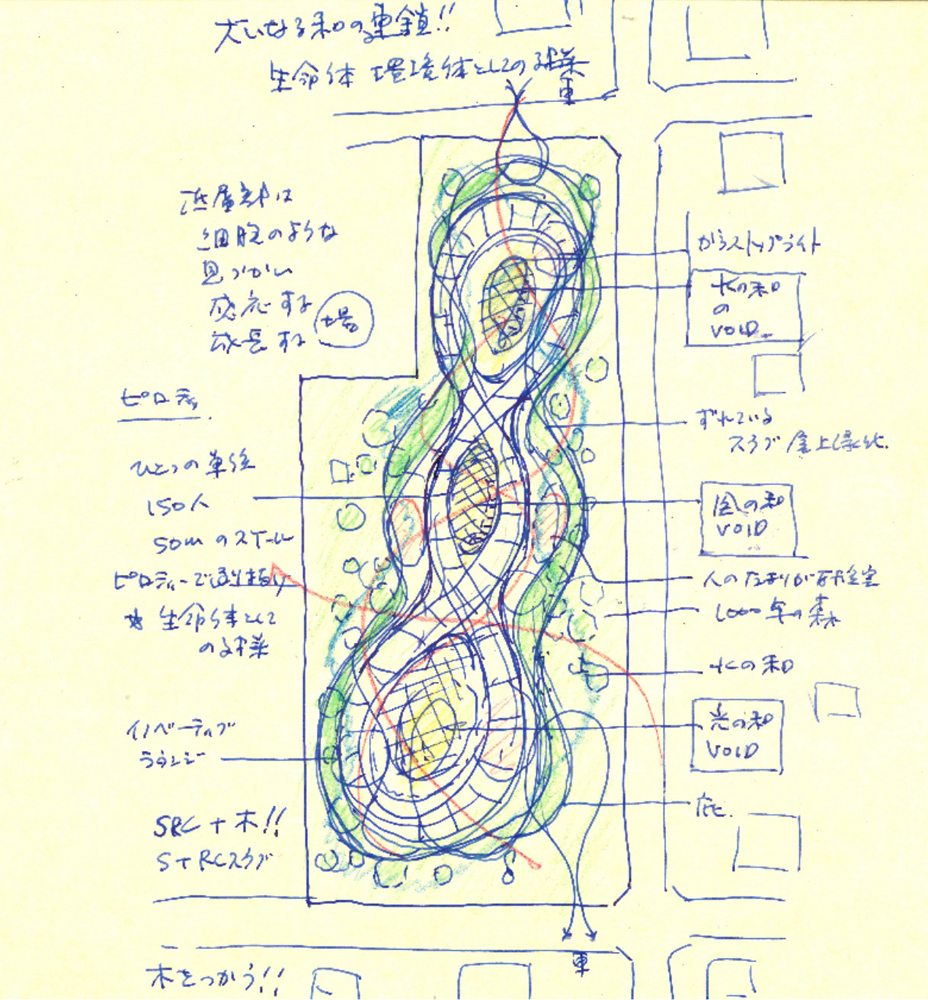 大いなる和の連鎖!!
生命体 環境体としての建築
車
低層部は
細胞のような
息づかい
感応する
成長する
場
ガラストップライト
水の和
の
VOID
ピロティ
ずれている
スラブ 屋上緑化
ひとつの単位
150人
50mのスケール
風の和
VOID
ピロティーで通り抜け
人のたまりが研究室
1000年の森
生命体として
の建築
水の和
イノベーティブ
ラウンジ
光の和
VOID
庇
SRC+木!!
S+RCスラブ
車
木をつかう!!